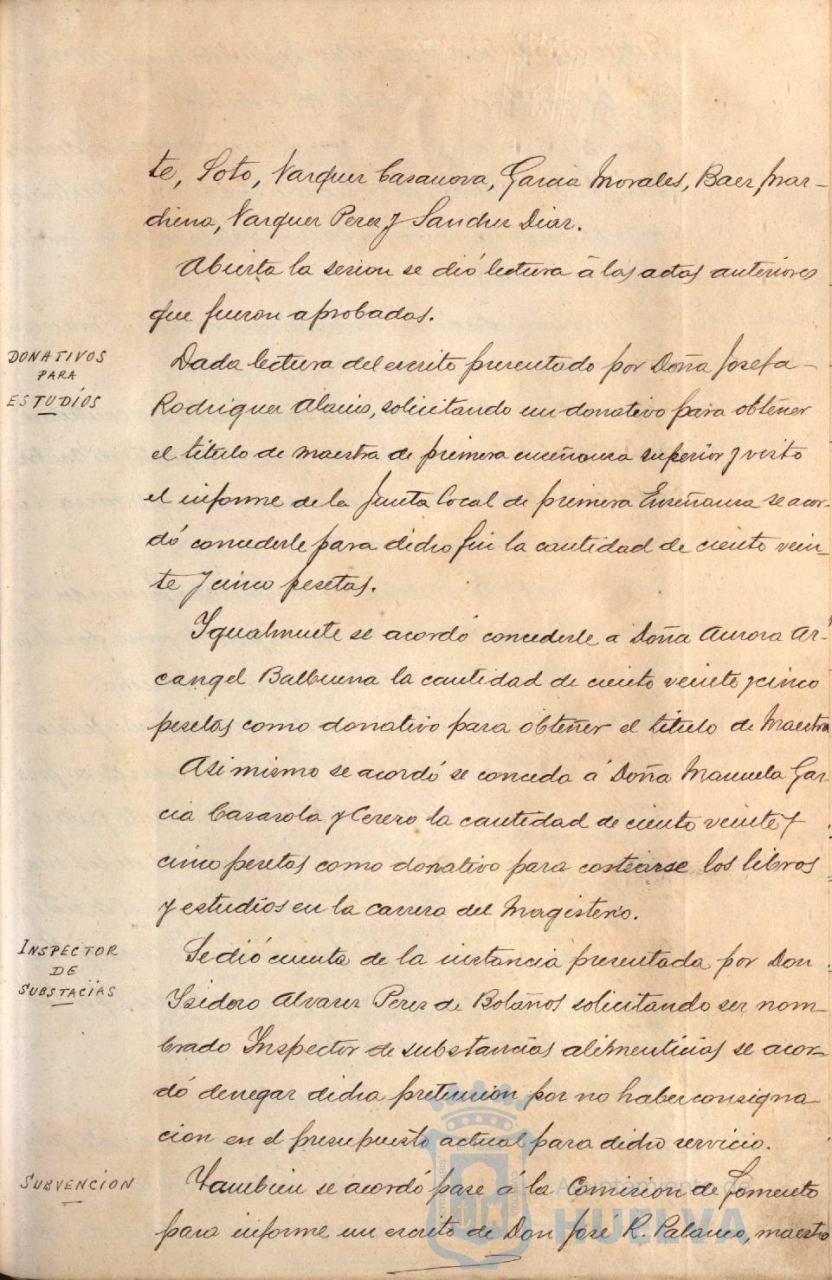 te, Soto, Vazquez Casanova, Garcia Morales, Baez Mar-
chena, Vazquez Perez y Sanchez Diaz.
Abierta la sesion se dió lectura á las actas anteriores
que fueron aprobadas.
DONATIVOS
PARA
ESTUDÍOS
Dada lectura del escrito presentado por Doña Josefa
Rodriguez, solicitando un donativo para obtener
el título de maestra de primera enseñanza superior y visto
el informe de la Junta local de primera Enseñanza se acor-
dó concederle para dicho fin la cantidad de ciento vein-
te y cinco pesetas.
Ygualmente se acordó concederle a Doña Aurora Ar-
cangel Balbuena la cantidad de ciento veinte y cinco
pesetas como donativo para obtener el título de Maestra
Asimismo se acordó se conceda á Doña Manuela Gar-
cia Casasola y Cerero la cantidad de ciento veinte y
cinco pesetas como donativo para costearse los libros
y estudios en la carrera del Magisterio.
INSPECTOR
DE
SUBSTACÍAS
Se dió cuenta de la instancia presentada por Don
Ysidoro Alvarez Perez de Bolaños solicitando ser nom-
brado Inspector de substancias alimenticias se acor-
dó denegar dicha pretension por no haber consigna-
cion en el presupuesto actual para dicho servicio.
SUBVENCION
Tambien se acordó pase á la Comision de Fomento
para informe un escrito de Don Jose R. Palanco, maestro
Ayuntamiento de
HUELVA